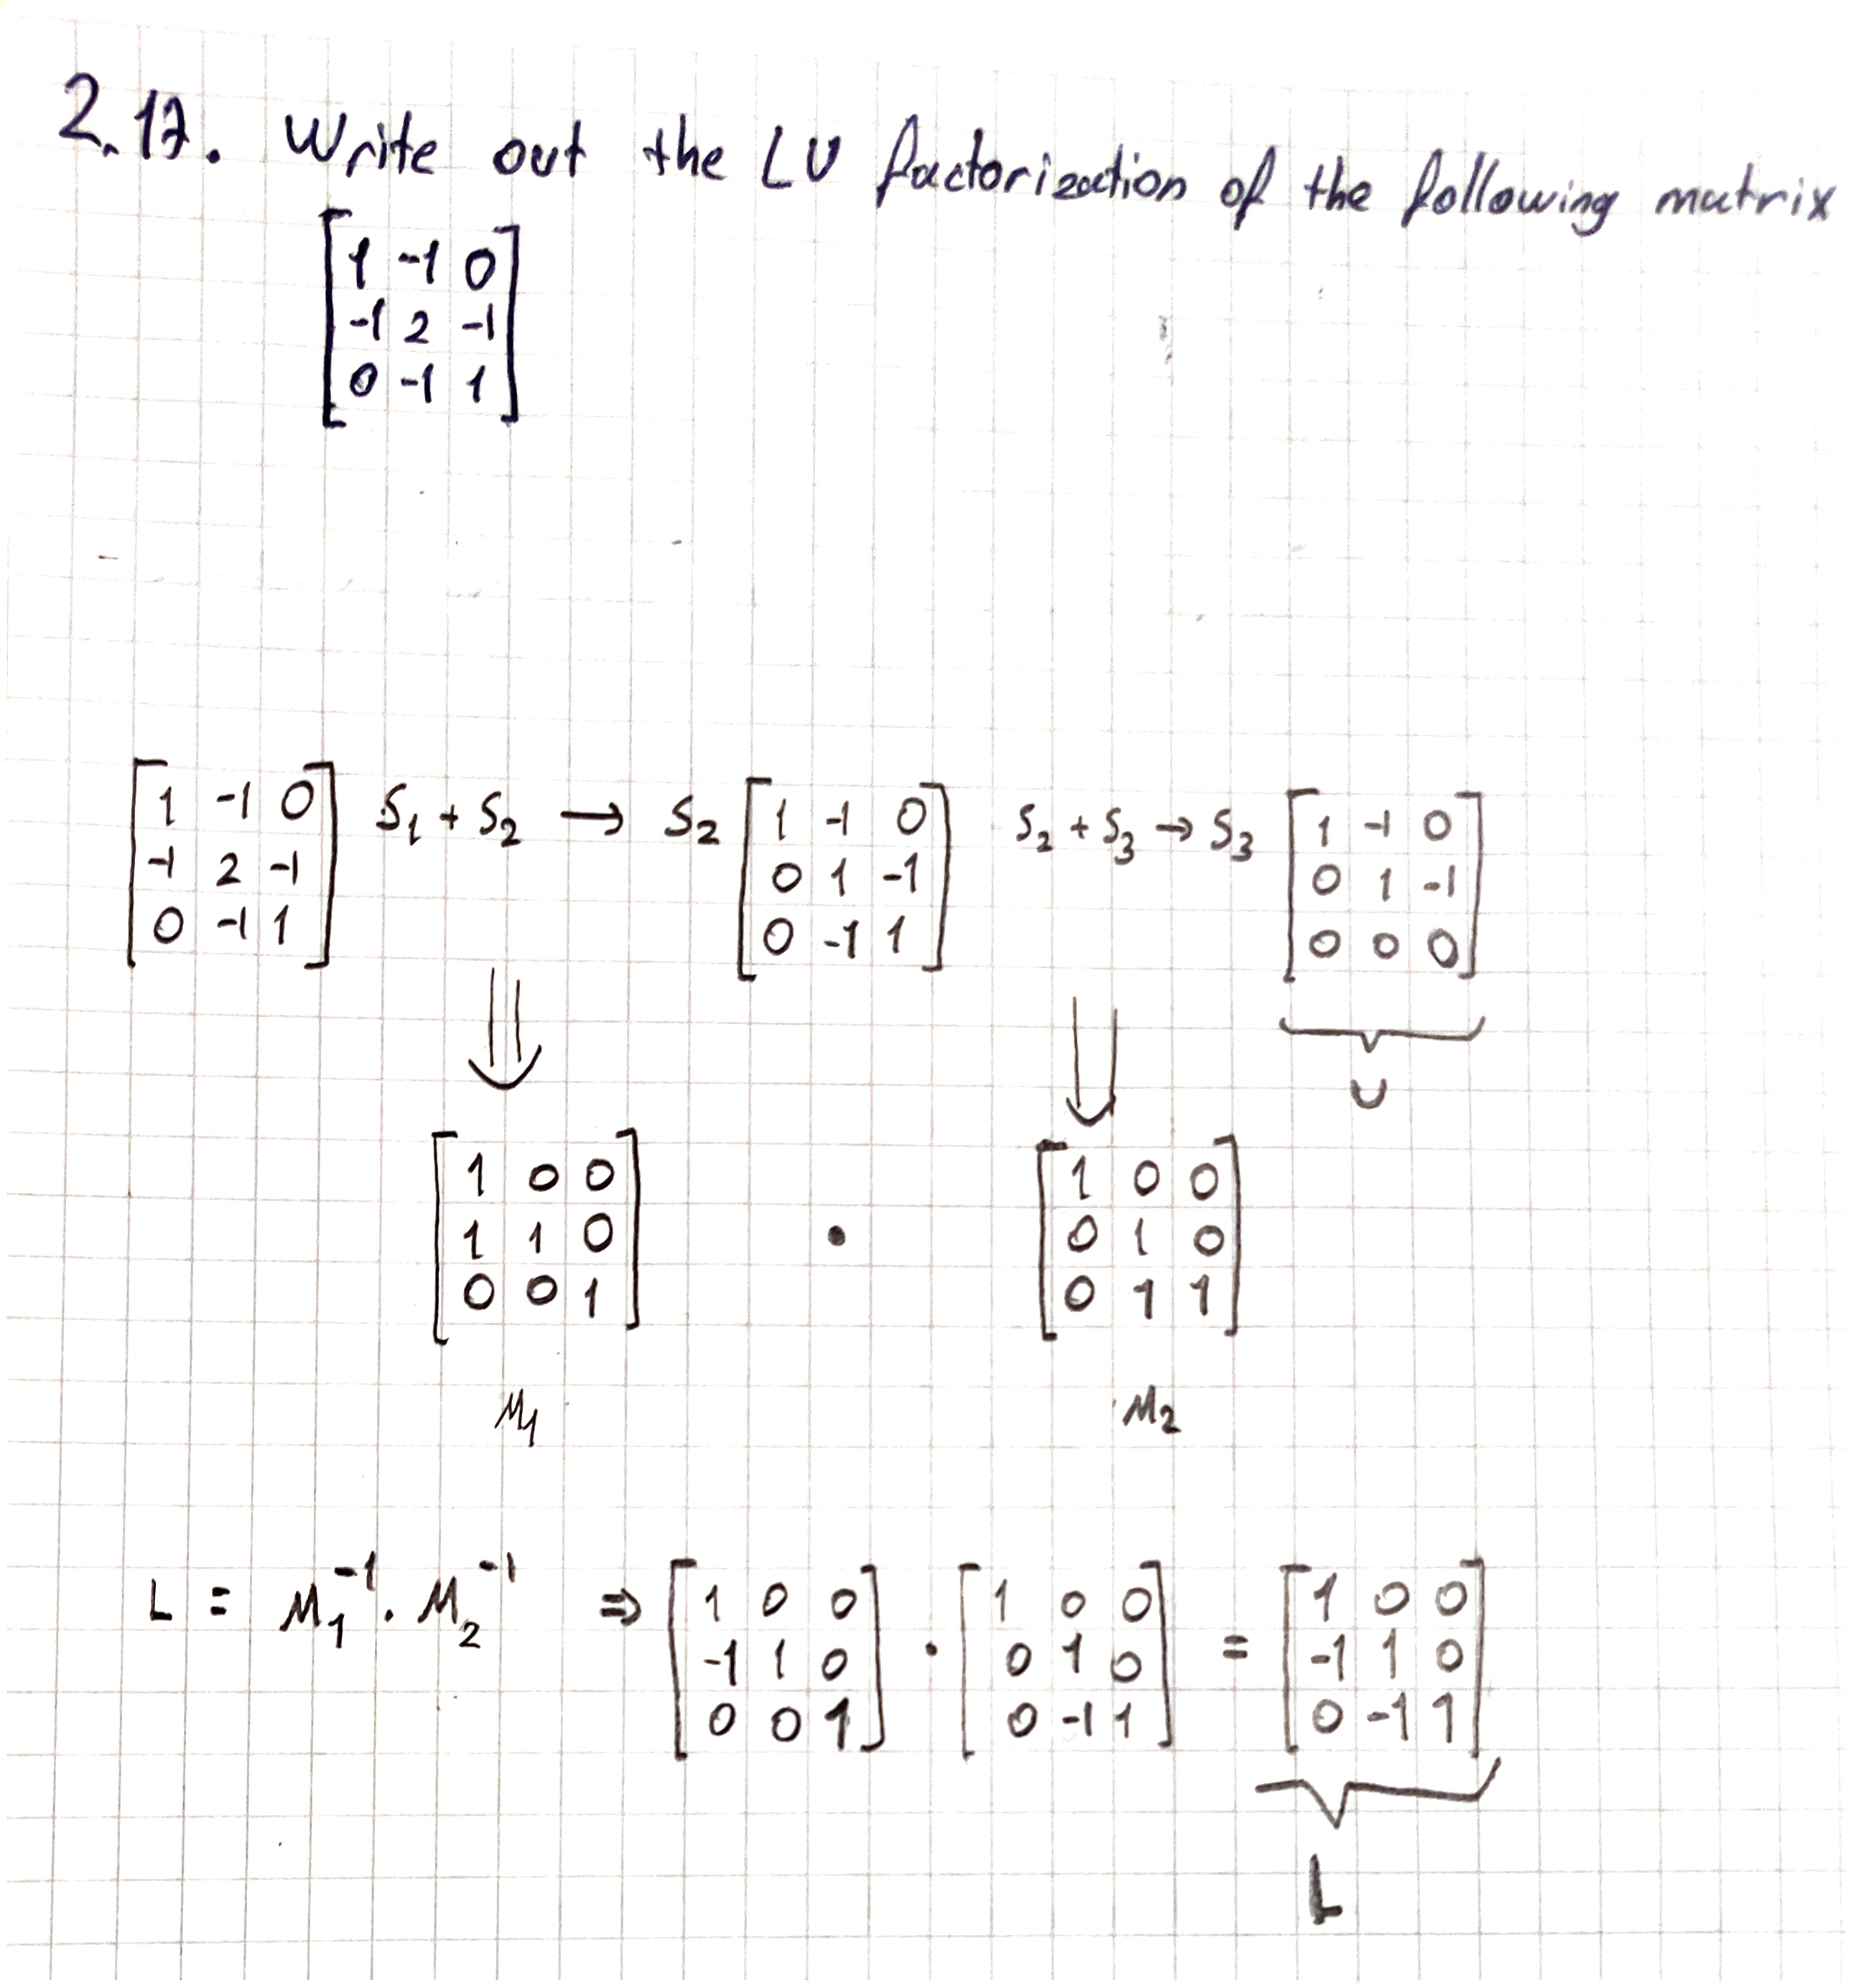 2.17. Write out the LU factorization of the following matrix
1 -1 0
-1 2 -1
0 -1 1
1 -1 0 S1 + S2 → S2 1 -1 0 S2 + S3 → S3 1 -1 0
-1 2 -1 0 1 -1 0 1 -1
0 -1 1 0 -1 1 0 0 0
U
1 0 0 1 0 0
1 1 0 • 0 1 0
0 0 1 0 1 1
M1 M2
L = M1^-1 . M2^-1 ⇒ 1 0 0 1 0 0 1 0 0
-1 1 0 • 0 1 0 = -1 1 0
0 0 1 0 -1 1 0 -1 1
L